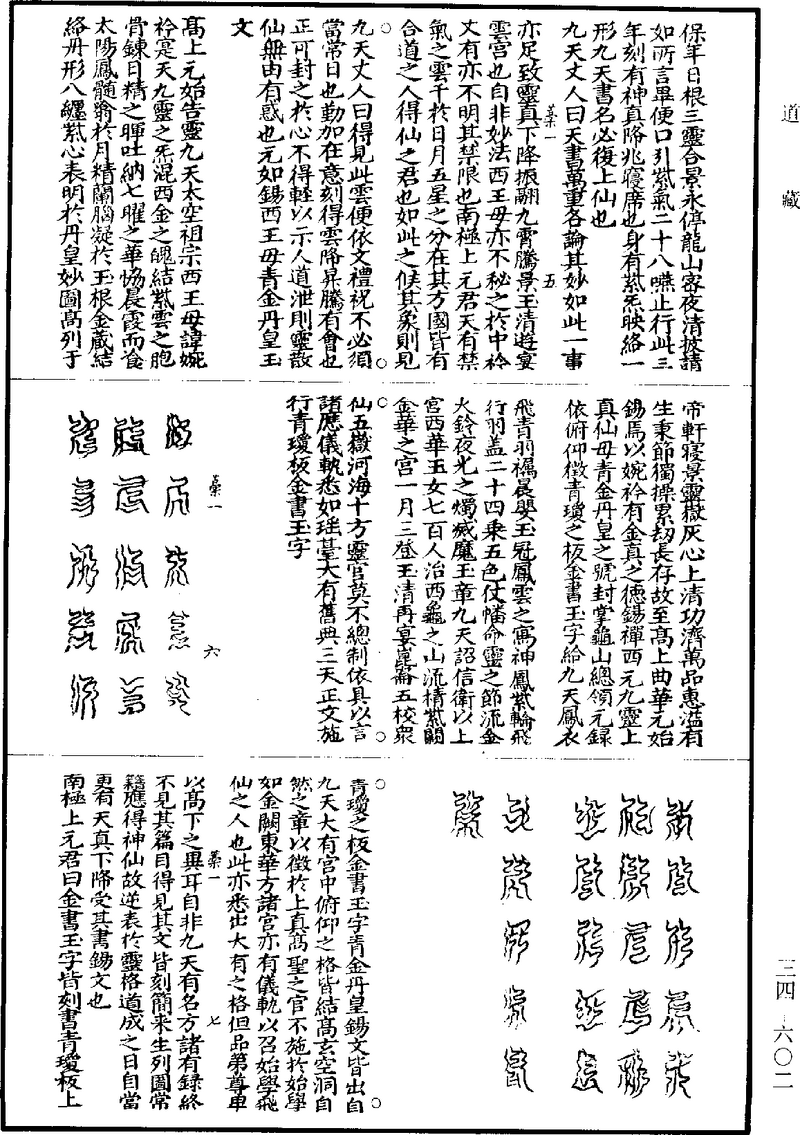 道藏
三四 六〇二
保年日根三靈合景永停龍山宻夜清披請
如所言畢便口引紫氣二十八嚥止行此三
年刻有神真降兆寢席也身有紫炁映絡一
形九天書名必復上仙也
九天丈人曰天書萬重各論其妙如此一事
菉一 五
亦足致靈真下降振翮九霄騰景玉清遊宴
雲宫也自非妙法西王母亦不秘之於中衿
丈有亦不明其禁限也南極上元君天有禁
氣之雲千於日月五星之分在其方國皆有
合道之人得仙之君也如此之候其象則見
九天丈人曰得見此雲便依文禮祝不必須
當常日也勤加在意刻得雲降昇騰有會也
正可封之於心不得輕以示人道泄則靈散
仙無由有惑也元如錫西王母青金丹皇玉
文
髙上元始告靈九天太空祖宗西王母諱婉
衿寔天九靈之炁混西金之魄結紫雲之胞
骨鍊日精之暉吐納七曜之華恊晨霞而食
太陽鳳髓翁於月精蘭腦凝於玉根金藏結
絡丹形八纏紫心表明於丹皇妙圖髙列于
帝軒寢景靈嶽灰心上清功濟萬品惠溢有
生秉節獨操累劫長存故至髙上曲華元始
錫焉以婉衿有金真之德錫禪西元九靈上
真仙母青金丹皇之號封掌龜山總領元録
依俯仰徵青瓊之板金書玉字給九天鳳衣
飛青羽襦晨嬰玉冠鳳雲之寓神鳳紫輪飛
行羽盖二十四乘五色仗幡命靈之節流金
火鈴夜光之燭滅魔玉章九天詔信衛以上
宫西華玉女七百人治西龜之山流精紫闕
金華之宫一月三登玉清再宴崑崙五校衆
仙五嶽河海十方靈官莫不總制依具以言
諸應儀軌悉如瑶臺大有舊典三天正文施
行青瓊板金書玉字
菉一 六
青瓊之板金書玉字青金丹皇錫文皆出自
九天大有宫中俯仰之格皆結髙玄空洞自
然之章以徵於上真髙聖之官不施於始學
如金闕東華方諸宫亦有儀軌以召始學飛
仙之人也此亦悉出大有之格但品第尊卑
菉一 七
以髙下之異耳自非九天有名方諸有録終
不見其篇目得見其文皆刻簡來生列圖常
籍應得神仙故逆表於靈格道成之日自當
更有天真下降受其書錫文也
南極上元君曰金書玉字皆刻書青瓊板上